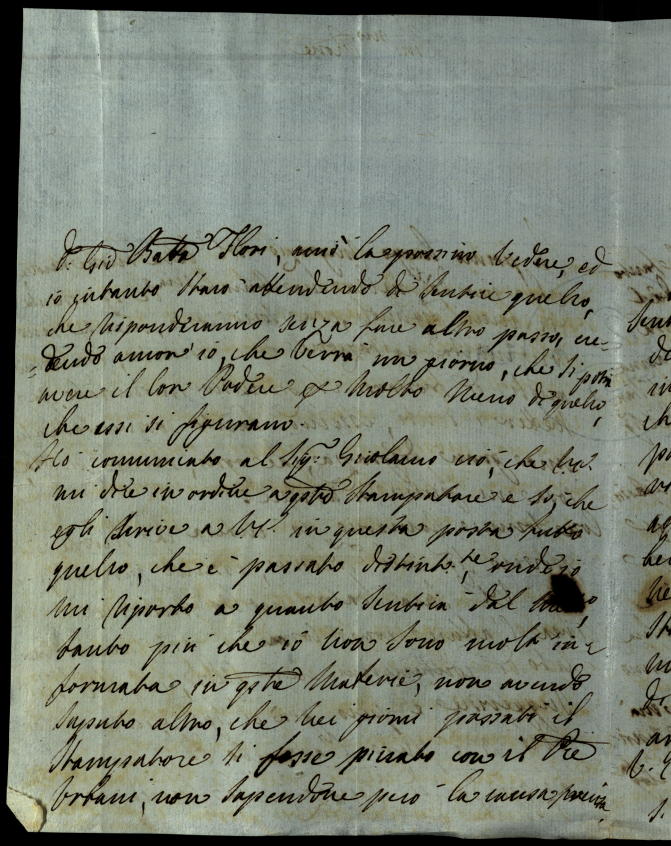 d: Gio Batta Flori, acciò la possino vedere, ed
io intanto starò attendendo di sentire quello,
che risponderanno senza fare altro passo, cre-
=dendo ancor io, che verrà un giorno, che si potrà
avere il lor Podere per molto meno di quello,
che essi si figurano.
Hò comunicato al Sig.r Girolamo ciò, che V.S.
mi dice in ordine a qsto Stampatore e so, che
egli scrive a V.S. in questa posta tutto
quello, che è passato distint.te, onde io
mi riporto a quanto sentirà dal
tanto più che iò non sono molto in=
formata in qste Materie, non avendo
saputo altro, che nei giorni passati il
Stampatore si fosse piccato con il Prè
Urbani, non sapendone però la causa precisa